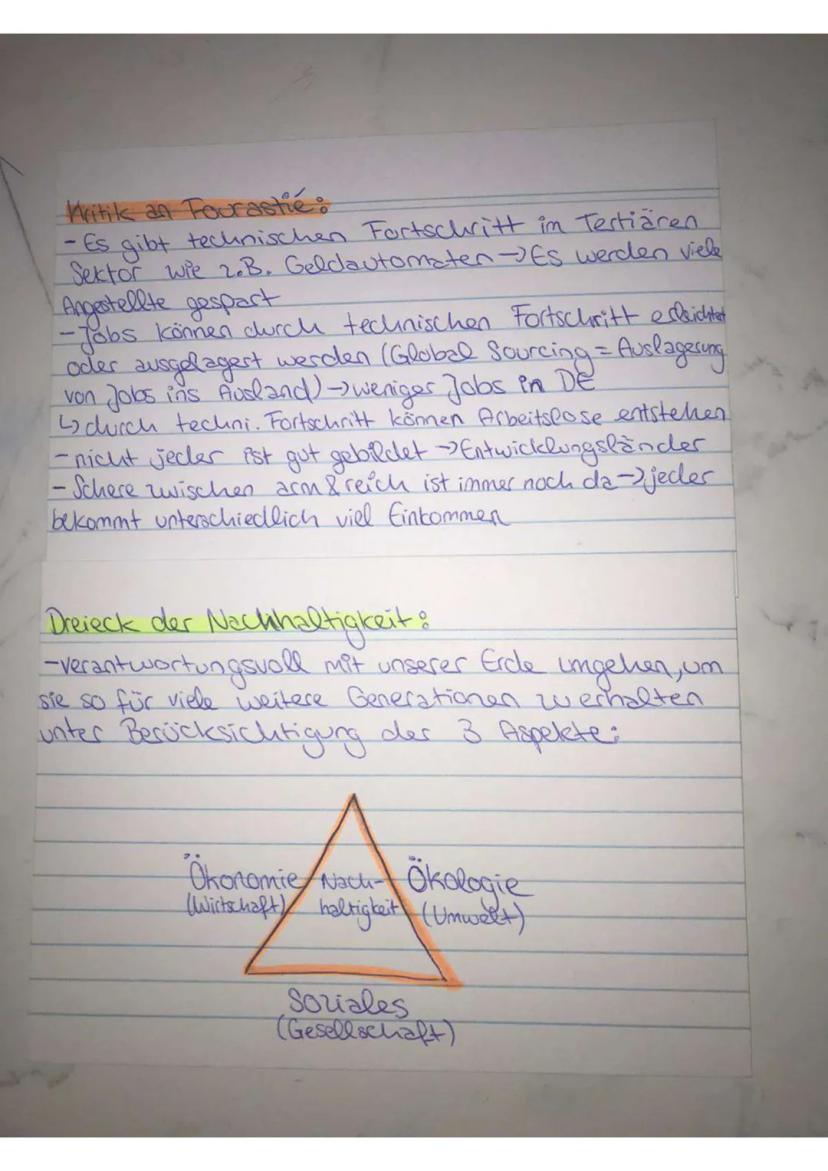 Kritik an Fourastié:
- Es gibt technischen Fortschritt im Tertiären
Sektor wie z.B. Geldautomaten → Es werden viele
Angestellte gespart
- Jobs können durch technischen Fortschritt erleichtert
oder ausgelagert werden (Global Sourcing = Auslagerung
von Jobs ins Ausland) → weniger Jobs in DE
↳ durch techni. Fortschritt können Arbeitslose entstehen
- nicht jeder ist gut gebildet → Entwicklungsländer
- Schere zwischen arm & reich ist immer noch da → jeder
bekommt unterschiedlich viel Einkommen
Dreieck der Nachhaltigkeit:
- verantwortungsvoll mit unserer Erde umgehen, um
sie so für viele weitere Generationen zu erhalten
unter Berücksichtigung der 3 Aspekte:
Ökonomie Nach- Ökologie
(Wirtschaft) haltigkeit (Umwelt)
Soziales
(Gesellschaft)